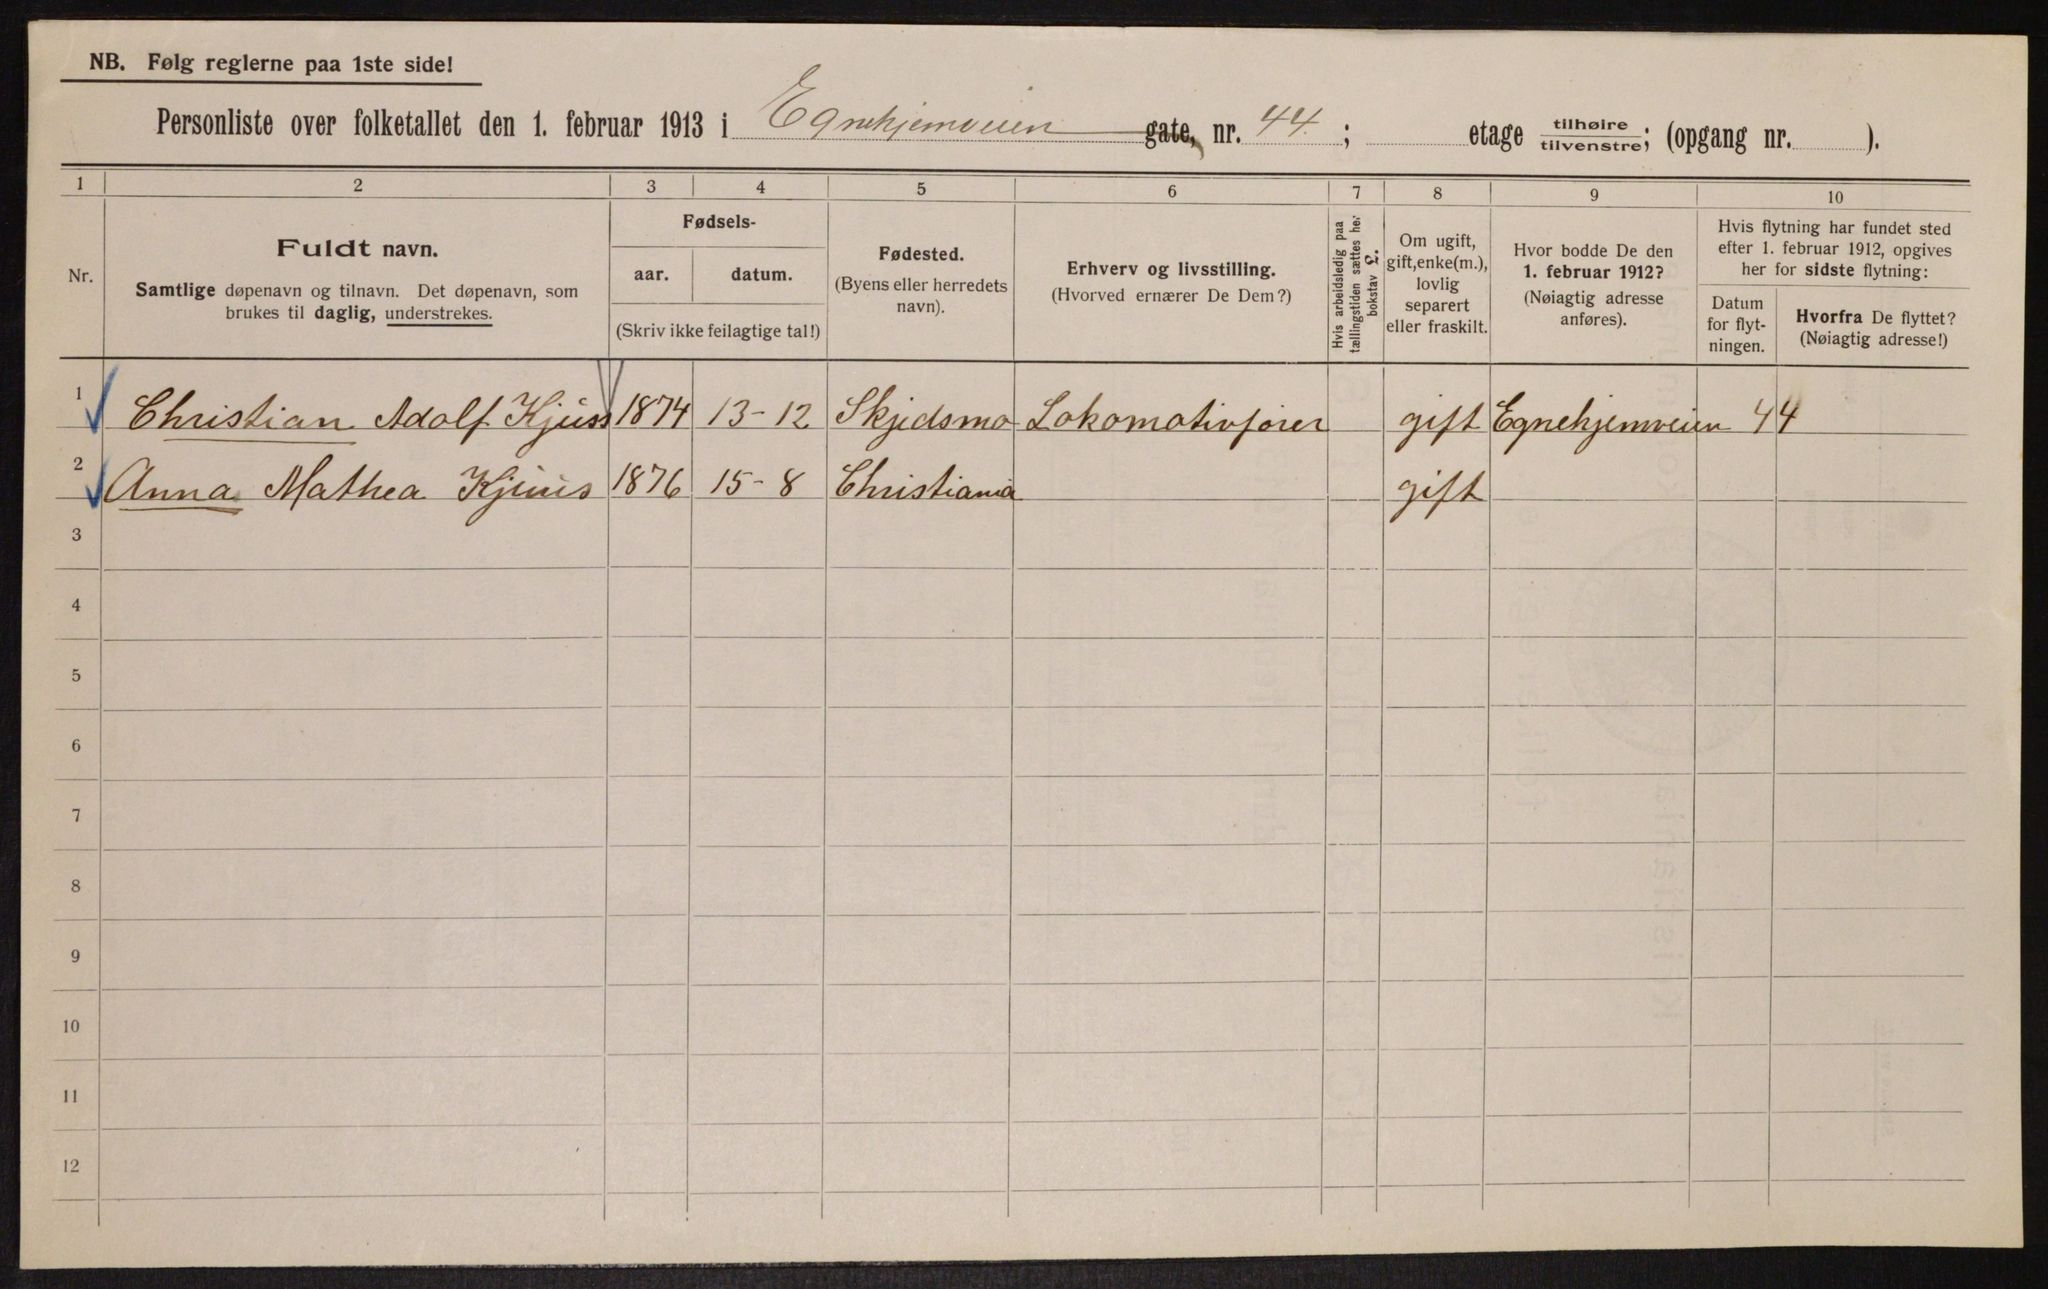 NB. Følg reglerne paa 1ste side!
Personliste over folketallet den 1. februar 1913 i Egnehjemveien gate, nr. 44. ; etage tilhøire tilvenstre; (opgang nr. ).
1 2 3 4 5 6 7 8 9 10
Nr.
Fuldt navn.
Samtlige døpenavn og tilnavn. Det døpenavn, som
brukes til daglig, understrekes.
Fødsels-
aar. datum.
(Skriv ikke feilagtige tal!)
Fødested.
(Byens eller herredets
navn).
Erhverv og livsstilling.
(Hvorved ernærer De Dem?)
Hvis arbeidsledig paa
tællingstiden sættes her
bokstav L.
Om ugift,
gift, enke(m.),
lovlig
separert
eller fraskilt.
Hvor bodde De den
1. februar 1912?
(Nøiagtig adresse
anføres).
Hvis flytning har fundet sted
efter 1. februar 1912, opgives
her for sidste flytning:
Datum
for flyt-
ningen.
Hvorfra De flyttet?
(Nøiagtig adresse!)
1 Christian Adolf Kjuss 1874 13-12 Skjedsmo Lokomotivfører gift Egnehjemveien 44
2 Anna Mathea Kjuus 1876 15-8 Christiania gift
3
4
5
6
7
8
9
10
11
12